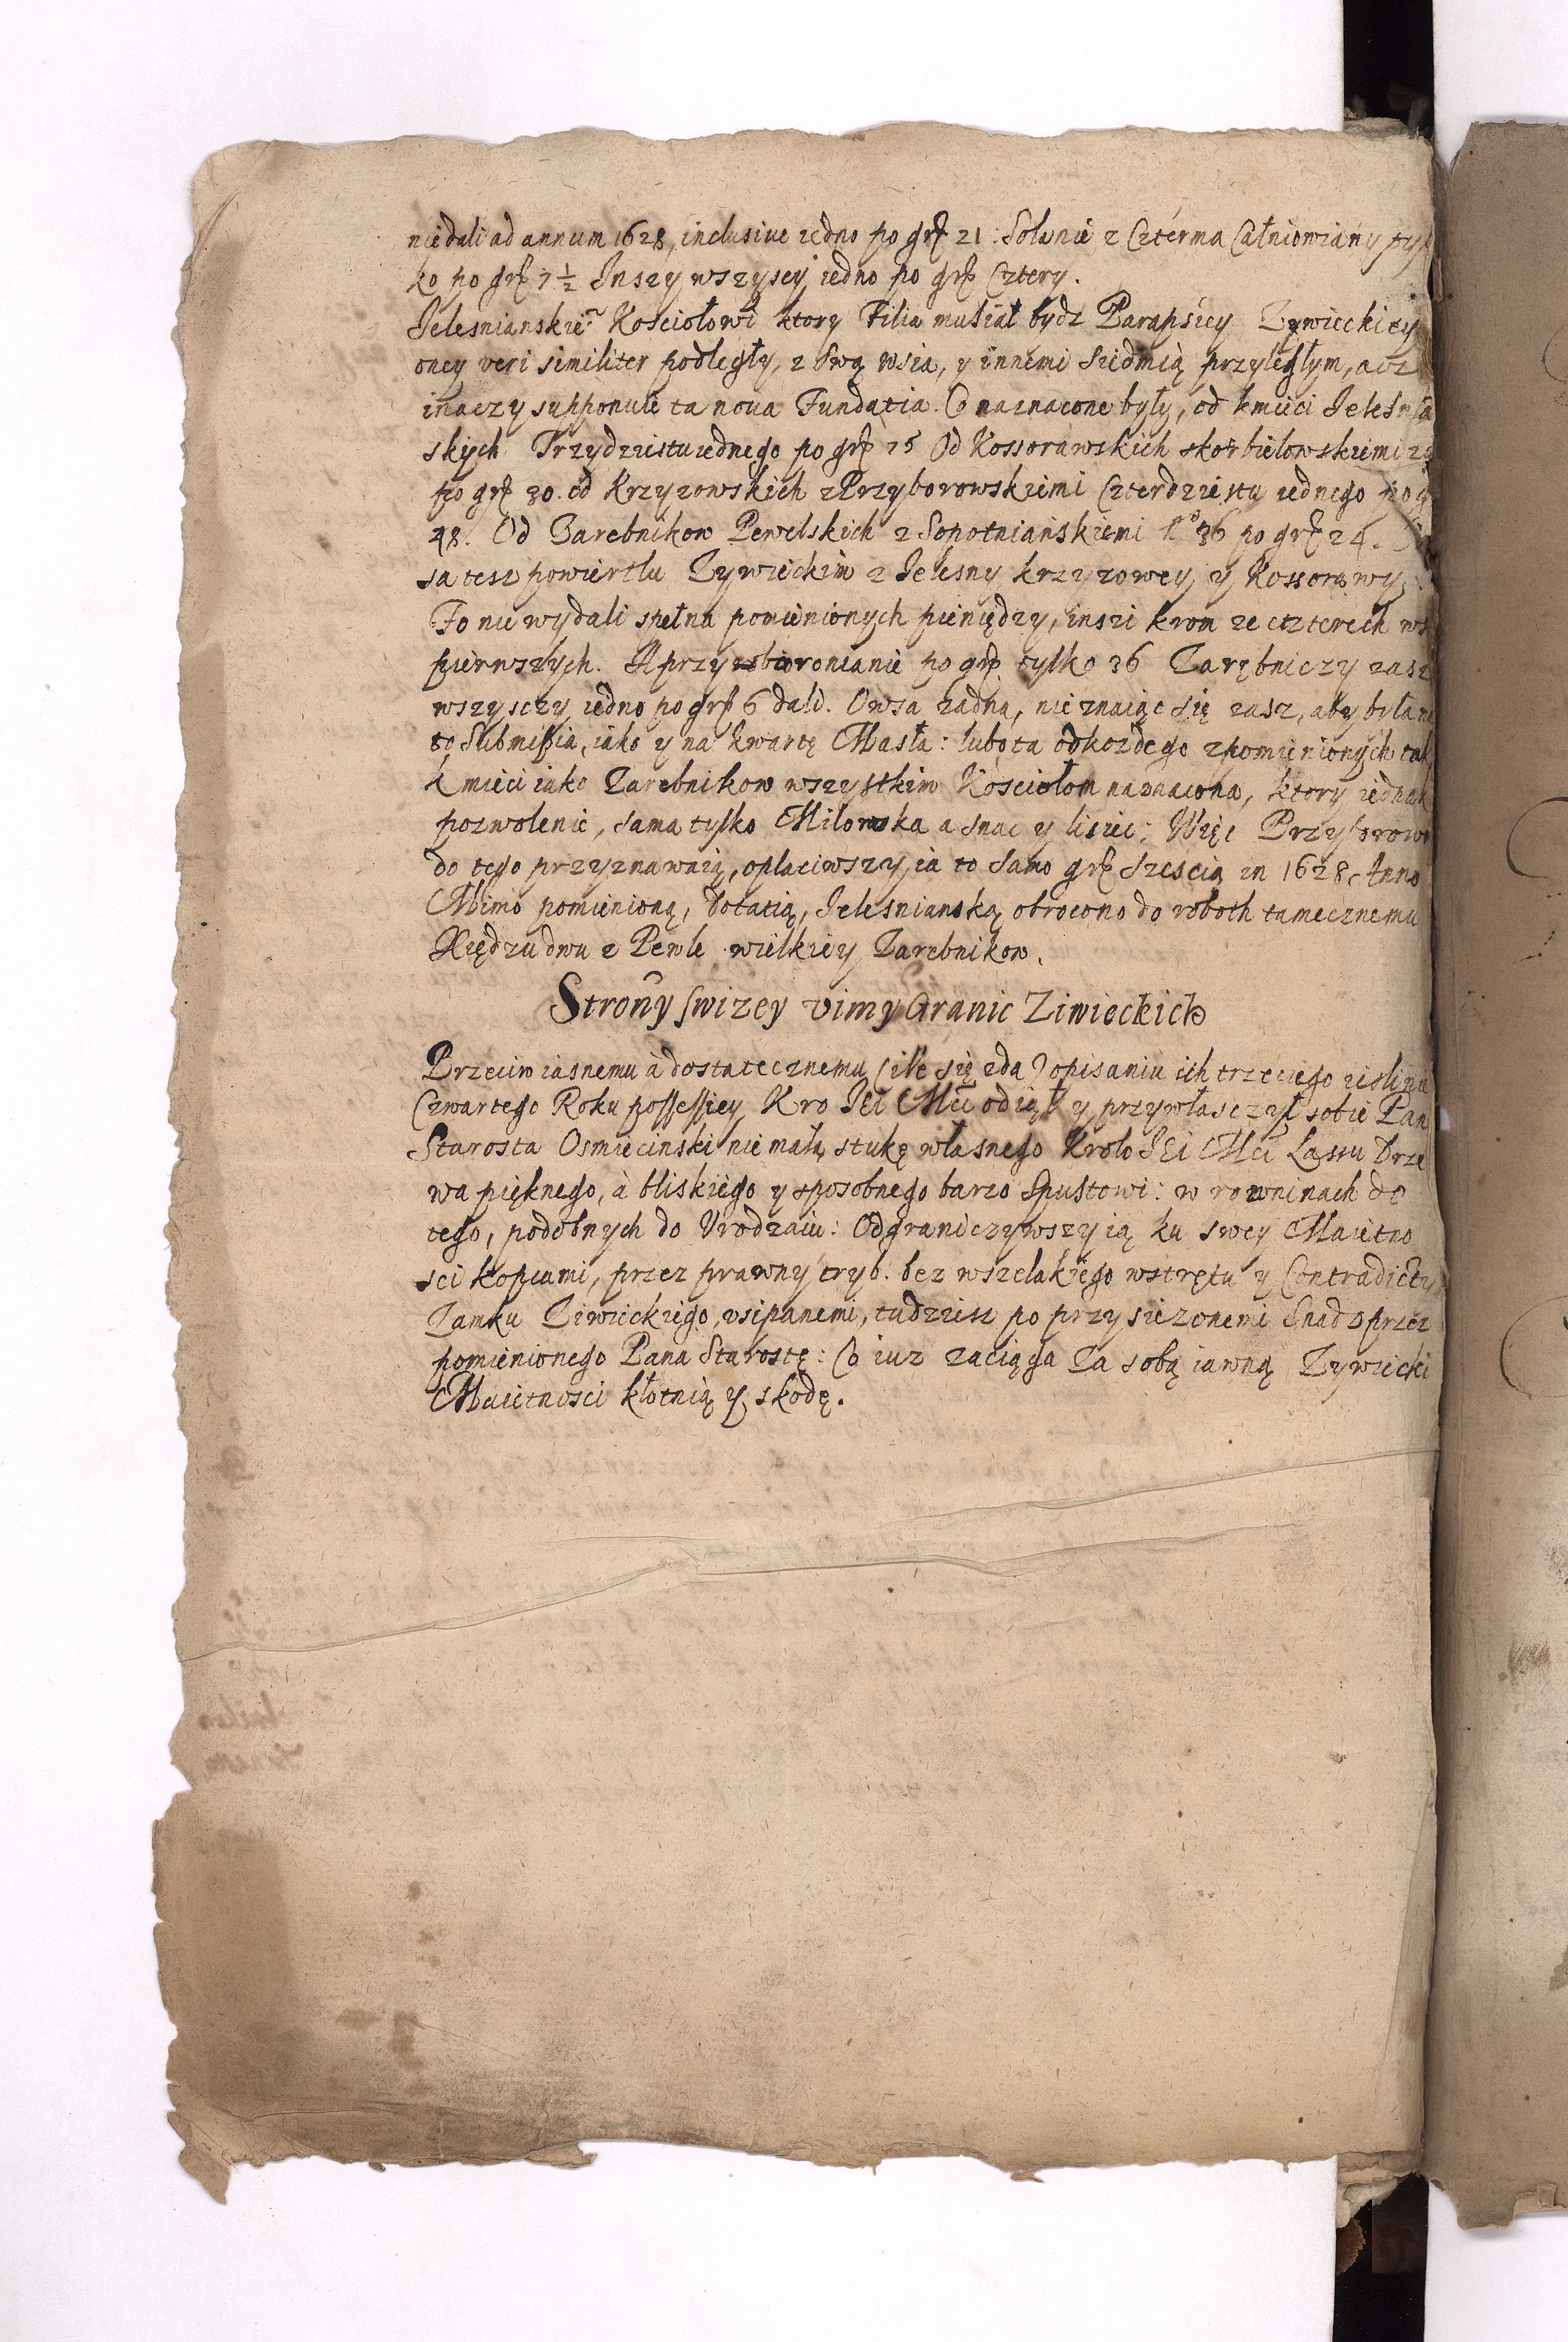 nie dali ad annum 1628, inclusiue iedno po grß 21: Solanie z Czterma Całniowiany tyl
ko po grß 7 ½ Inszy wszyscy iedno po grß Cztery.
Jelesnianskie° Kosciołowi ktory Filia musiał bydz Paraphiey Zywieckiey
oney veri similiter podległy, z swą wsią, y innemi siedmią przyległym, acz
inaczy supponuie ta noua Fundatia. Co naznacone były, od kmieci Jelesnia
skych Trzydziestu iednego po grß 75 Od Kossorawskich skorbielowskiemi
po grß 30. od Krzyzowskich z Przyborowskiemi Czterdziestu iednego po
48. Od Zarebnikow Pewelskich z Sopotniańskiemi n° 36 po grß 24.
sa tesz powiertlu Zywieckim z Jelesny krzyzowey y Kossorowy.
To nie wydali spełna pomienionych pieniędzy, inszi krom ze czterech ws
pierwszych. A przyborowianie po grß tylko 36 Zarębniczy zasz
wszysczy iedno po grß 6 dali. Owsa zadna, nie znaiąc się zasz, aby była na
to Submissia, iako y na kwartę Masła: lubo ta od kozdego z pomienionych tak
kmieci iako Zarebnikow wszystkim Kosciołom naznacona, ktory iednak
pozwolenie, sama tylko Milowska a snac y lisiec: Więc Przyborow
do tego przyznawaią, oplaciwszy ia to samo grß szescią in 1628 Anno
Mimo pomienioną, dotatią, Jelesnianską obrocono do roboth tamecznemu
Xiędzu dwu z Pewle wielkiey Zarebnikow.
Strony swizey vimy Granic Ziwieckich
Przeciw iasnemu à dostatecznemu (ile się zda) opisaniu ich trzeciego zislinu
Czwartego Roku possessiey Kro JEi Mci odiął y przywłasczył sobie Pan
Starosta Osmiecinski nie małą stukę własnego Krolo JEi Mci Lassu Drze
wa pięknego, à bliskiego y sposobnego barzo Spustowi: w rowninach do
tego, podobnych do Vrodzaiu: Odgraniczywszy ią ku swey Maietno
sci kopcami, przez prawny tryb. bez wszelakiego wstrętu y Contradicty
Zamku Ziwieckiego, vsipanemi, tudziesz po przysiezonemi Snad przez
pomienionego Pana Starostę: Co iuz zaciąga Za sobą iawną Zywiecki
Maietnosci kłotnią y skodę.